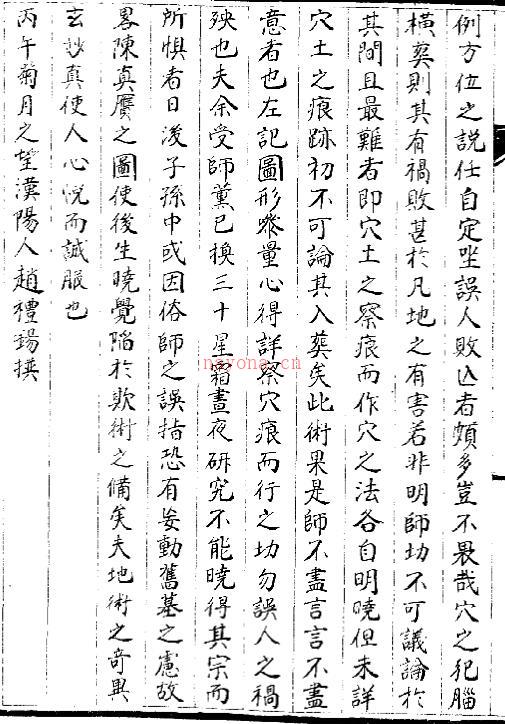 例方位之説任自定坐誤人敗亾者頗多豈不畏哉穴之犯腦
橫奕則其有禍敗甚於凡地之有害若非明師切不可議論於
其間且最難者即穴土之察痕而作穴之法各自明曉但未詳
穴土之痕跡初不可論其入葬矣此術果是師不盡言言不盡
意者也左記圖形㕘量心得詳察穴痕而行之切勿誤人之禍
殃也夫余受師薰已換三十星霜晝夜研究不能曉得其宗而
所惧者日後子孫中或因俗師之誤指恐有妄動舊墓之慮故
畧陳真贋之圖使後生曉覺陷於欺術之備矣夫地術之奇異
玄妙真使人心悅而誠服也
丙午菊月之望漢陽人趙禮錫撰
nayona.cn